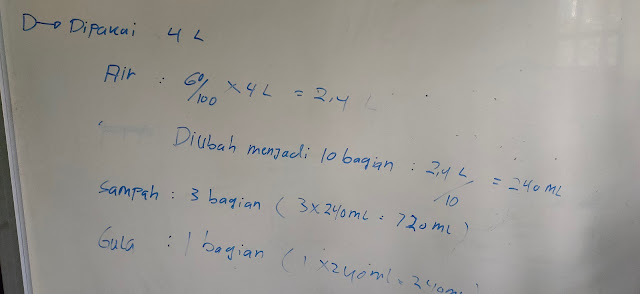 D → Dipakai 4 L
Air : 60/100 × 4 L = 2,4 L
Diubah menjadi 10 bagian : 2,4 L/10 = 240 mL
Sampah : 3 bagian ( 3 × 240 mL = 720 mL )
Gula : 1 bagian ( 1 × 240 ml = 240 ml